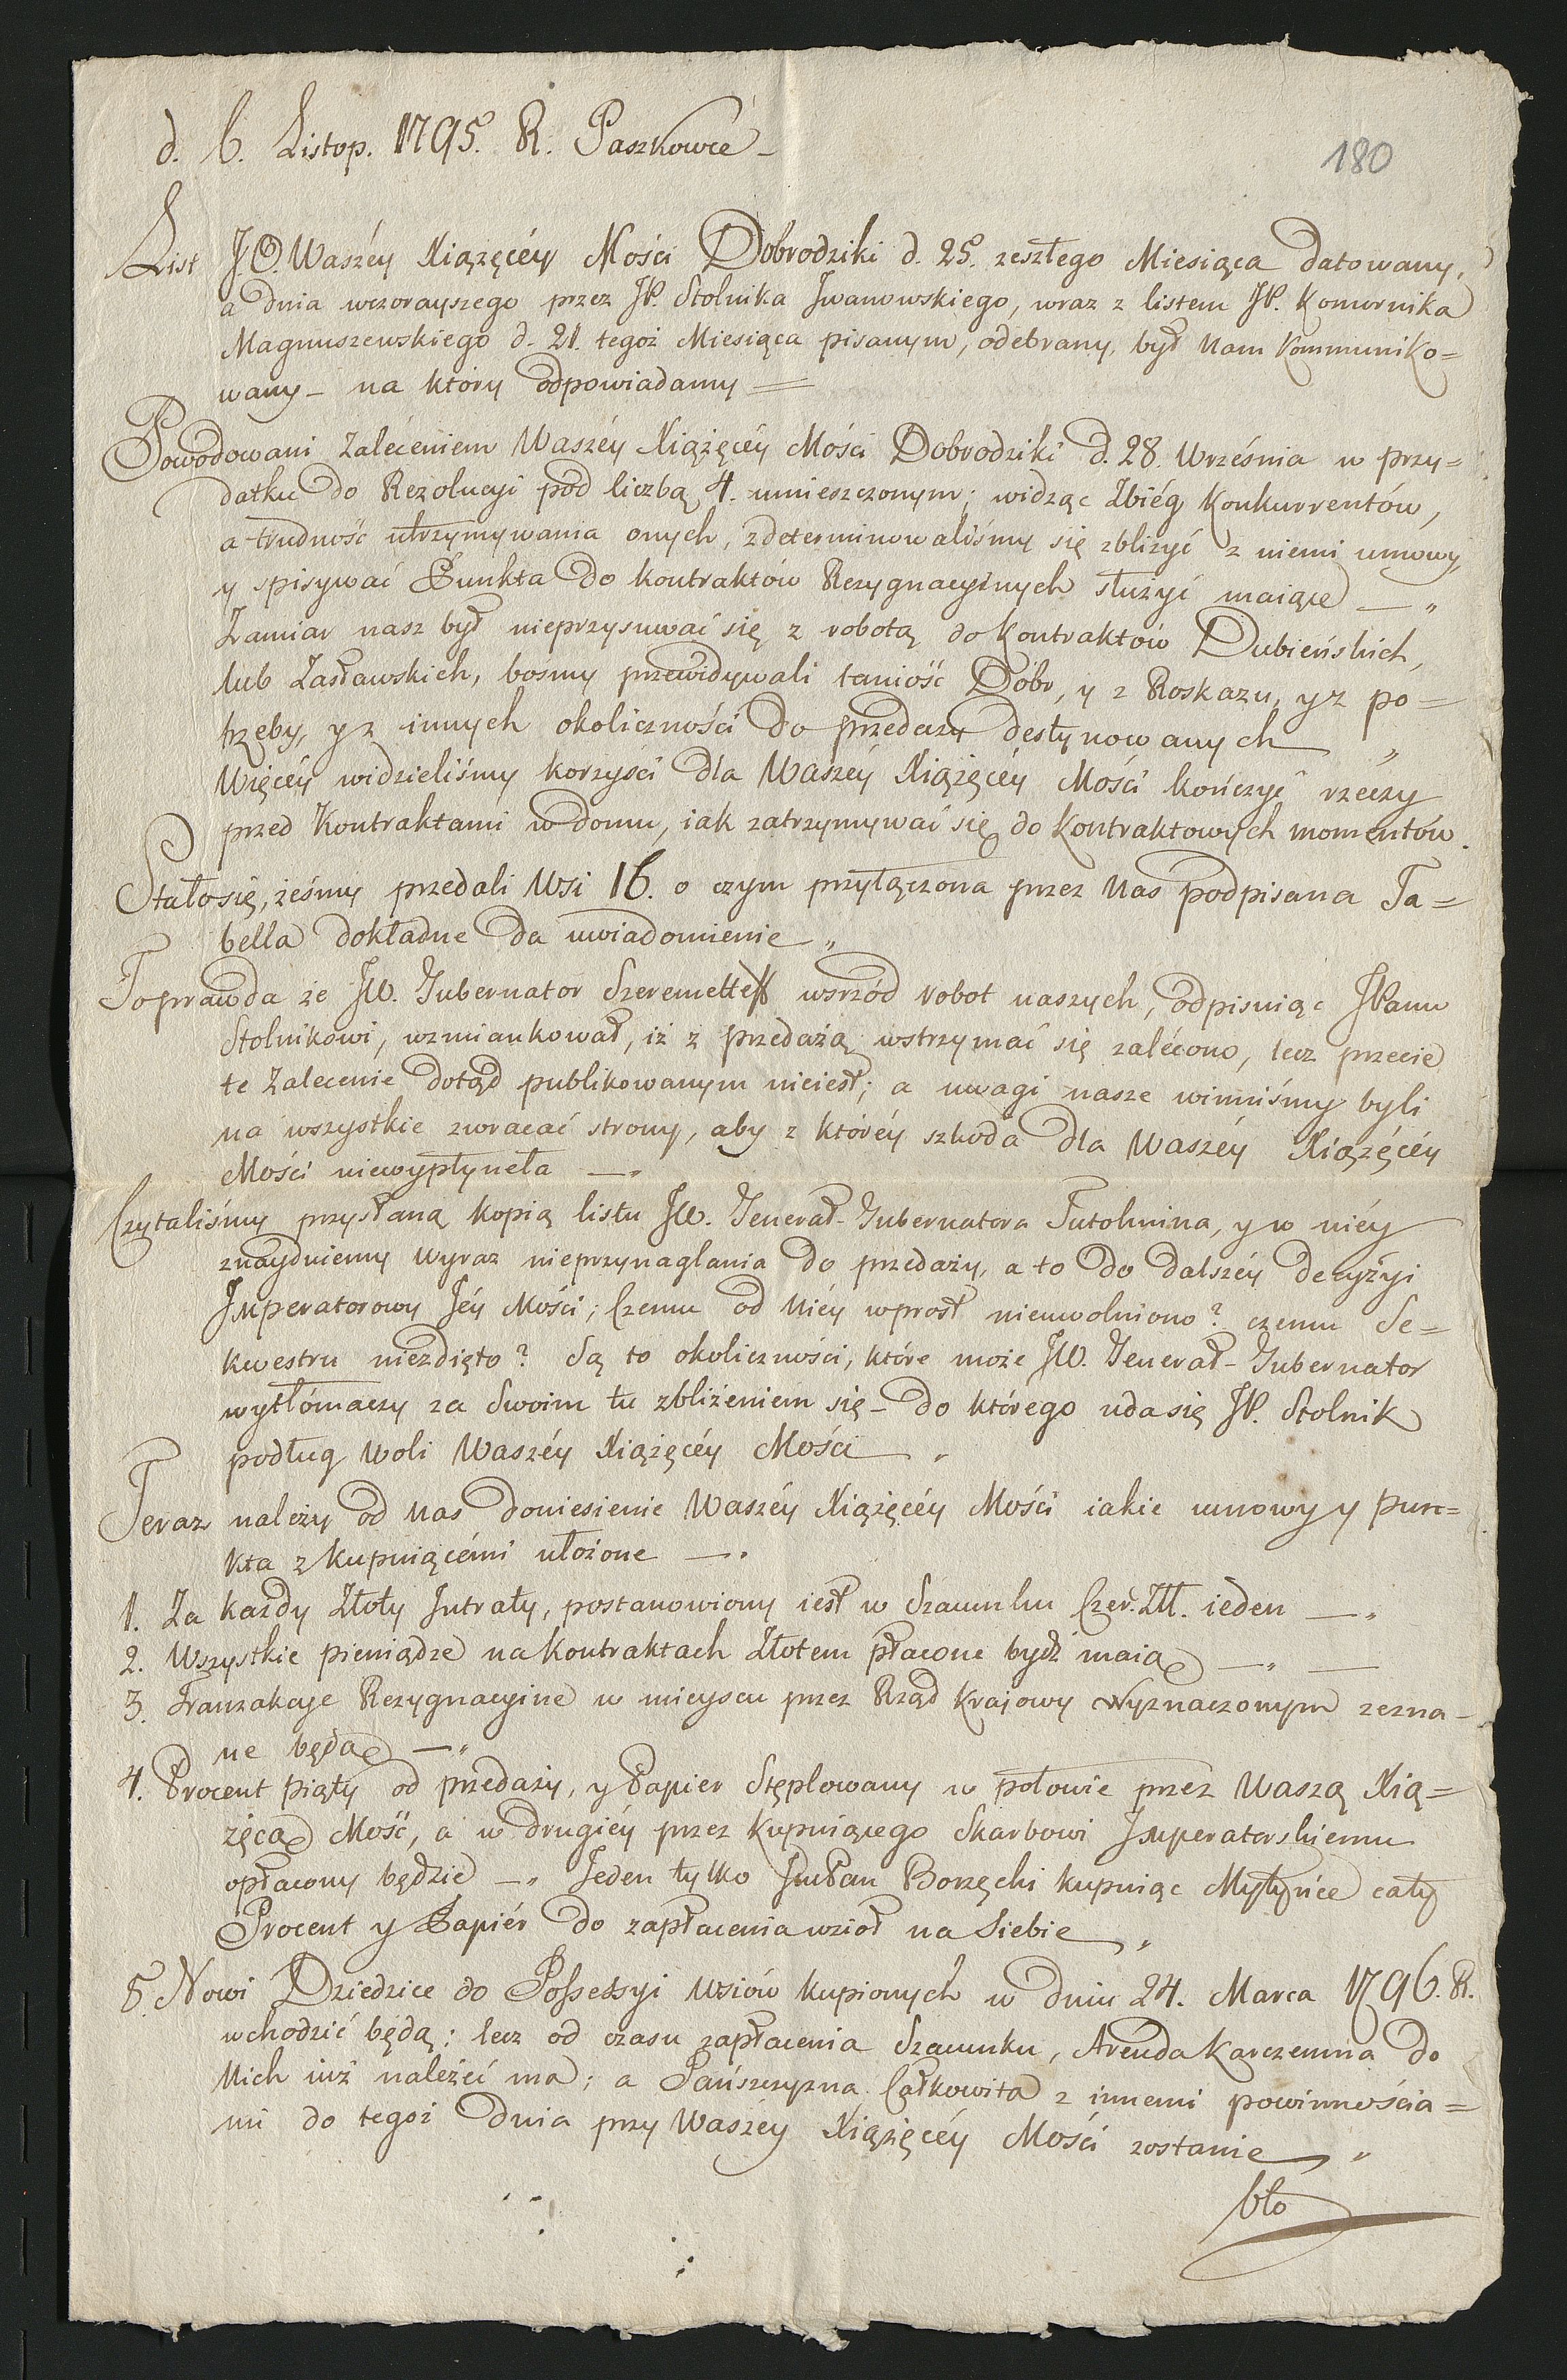 d. 6. Listop. 1795. R. Paszkowce
180
List J.O. Waszéy Xiążęcéy Mości Dobrodziki d. 25. zeszłego Miesiąca datowany,
a dnia wczorayszego przez JP. Stolnika Jwanowskiego, wraz z listem JP. Komornika
Magnuszewskiego d. 21. tegoż Miesiąca pisanym, odebrany, był Nam Kommuniko=
wany – na który odpowiadamy =
Powodowani Zaleceniem Waszéy Xiążęcéy Mości Dobrodziki d. 28. Września w przy=
datku do Rezolucyi pod liczbą 4. umieszczonym; widząc Zbiég Konkurrentów,
a trudność utrzymywania onych, zdeterminowaliśmy się zbliżyć z niemi umowy,
y spisywać Punkta do kontraktów Rezygnacyinych służyć maiące — „
Zamiar nasz był nieprzysuwać się z robotą do Kontraktów Dubieńskich,
lub Zasławskich, bosmy przewidywali taniość Dóbr, y z Roskazu, y z po=
trzeby, y z innych okoliczności do przedaży destynowanych „
Więcéy widzieliśmy korzyści dla Waszéy Xiążęcéy Mości kończyć rzeczy
przed Kontraktami w domu, iak zatrzymywać się do Kontraktowych momentów.
Stało się, żeśmy przedali Wsi 16. o czym przyłączona przez Nas podpisana Ta=
bella dokładne da uwiadomienie „
To prawda że JW. Gubernator Szeremetteff wsrzód robot naszych, odpisuiąc JPanu
Stolnikowi, wzmiankował, iż z przedażą wstrzymać się zalécono, lecz przecie
te Zalecenie dotąd publikowanym nieiest; a uwagi nasze winniśmy byli
na wszystkie zwracać strony, aby z któréy szkoda dla Waszéy Xiążęcéy
Mości niewypłyneła — „
Czytaliśmy przysłaną kopią listu JW. Generał-Gubernatora Tutolmina, y w niéy
znayduiemy wyraz nieprzynaglania do przedaży, a to do dalszéy decyzyi
Jmperatorowy Jéy Mości; Czemu od Niéy wprost nieuwolniono? czemu Se=
kwestru niezdięto? Są to okoliczności, które może JW. Generał-Gubernator
wytłómaczy za Swoim tu zbliżeniem się – do którego uda się JP. Stolnik
podług Woli Waszéy Xiążęcéy Mości „
Teraz należy od Nas doniesienie Waszéy Xiążęcéy Mości iakie umowy y pun=
kta z kupuiącémi ułożone — .
1. Za każdy Złoty Jntraty, postanowiony iest w Szacunku Czer. Złł. ieden — „
2. Wszystkie pieniądze na Kontraktach Złotem płacone bydź maią — „ —
3. Tranzakcye Rezygnacyine w mieyscu przez Rząd Krajowy Wyznaczonym zezna-
ne będą — „
4. Procent piąty od przedaży, y Papier Stęplowany w połowie przez Waszą Xią=
żęcą Mość, a w drugiéy przez kupuiącego Skarbowi Jmperatorskiemu
opłacony będzie — „ Jeden tylko JmPan Borzęcki kupuiąc Mytyńce cały
Procent y Papiér do zapłacenia wzioł na Siebie „
5. Nowi Dziedzice do Possessyi Wsiów kupionych w dniu 24. Marca 1796. R.
wchodzić będą: lecz od czasu zapłacenia Szacunku, Arenda Karczemna do
Nich iuż należéć ma; a Pańszczyzna Całkowita z innemi powinnościa=
mi do tegoż dnia przy Waszéy Xiążęcéy Mości zostanie „
6to